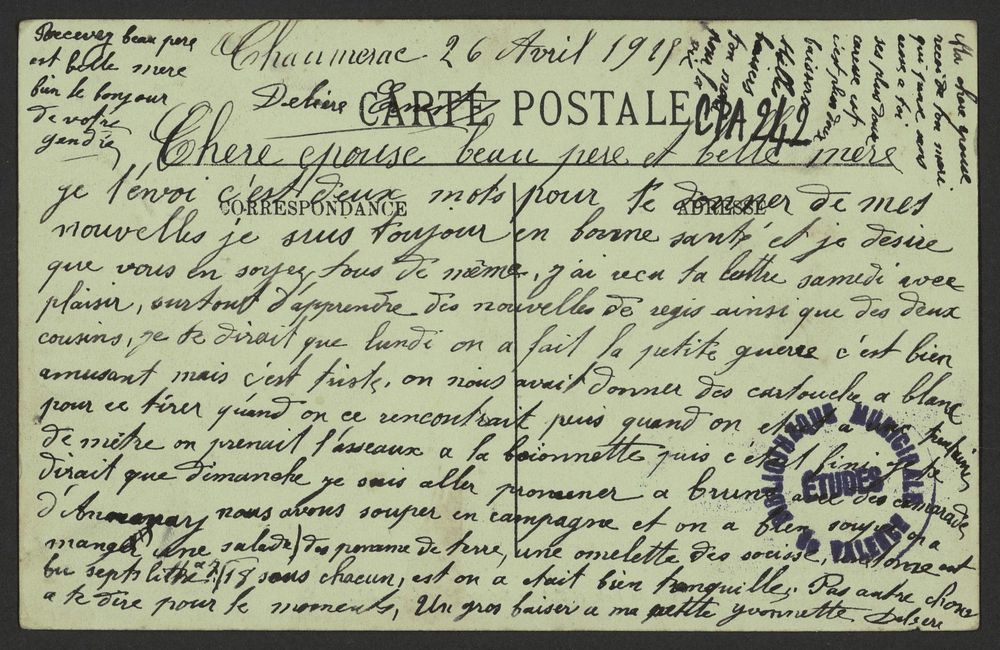 Recevez beau pere
et belle mere
bien le bonjour
de votre
gendre
Chaumerac 26 Avril 1915
Ma chere epouse
recois de ton mari
qui pense sans
cesse a toi
ses plus doux
baisers
Delière Ernest
CARTE POSTALE
CPA 242
Chere epouse beau pere et belle mere
CORRESPONDANCE
ADRESSE
je t'envoi c'est deux mots pour te donner de mes
nouvelles je suis toujour en bonne santé et je desire
que vous en soyez tous de même, j'ai recu ta lettre samedi avec
plaisir, surtout d'apprendre des nouvelles de regis ainsi que des deux
cousins, je te dirait que lundi on a fait la petite guerre c'est bien
amusant mais c'est triste, on nous avait donner des cartouche a blanc
pour ce tirer quand on ce rencontrait puis quand on etait a
de mètre on prenait l'asseaux a la baionnette puis c'etait fini je te
dirait que dimanche je suis aller promener a brune avec des camarades
d'Annonay nous avons souper en campagne et on a bien souper on a
manger une salade des pomme de terre, une omelette des sousisse, et
bu septs litre a 18 sous chacun, est on a etait bien tranquille. Pas autre chose
a te dire pour le moments, Un gros baiser a ma petite yvonnette Deliere
BIBLIOTHEQUE MUNICIPALE
ETUDES
DE VALENCE